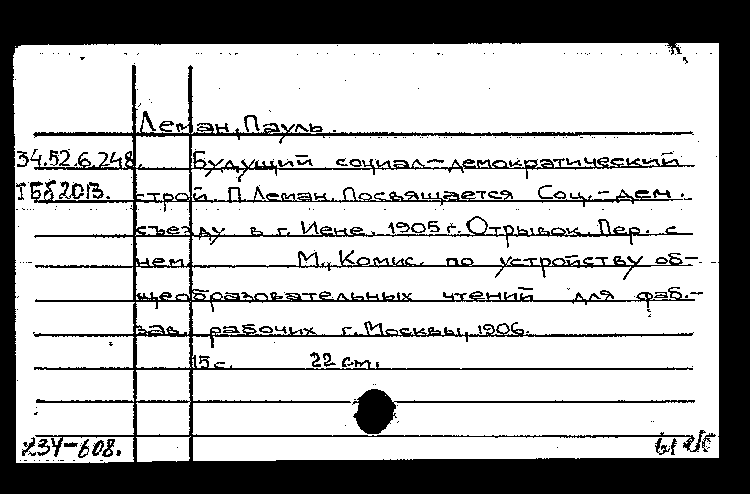 Леман, Пауль.
34.52.6.248. Будущий социал-демократический
строй. П. Леман. Посвящается Соц.-дем.
съезду в г. Иене. 1905 г. Отрывок. Пер. с
нем. М., Комис. по устройству об-
щеобразовательных чтений для фаб.-
зав. рабочих г. Москвы, 1906.
15 с. 22 см.
234-608.